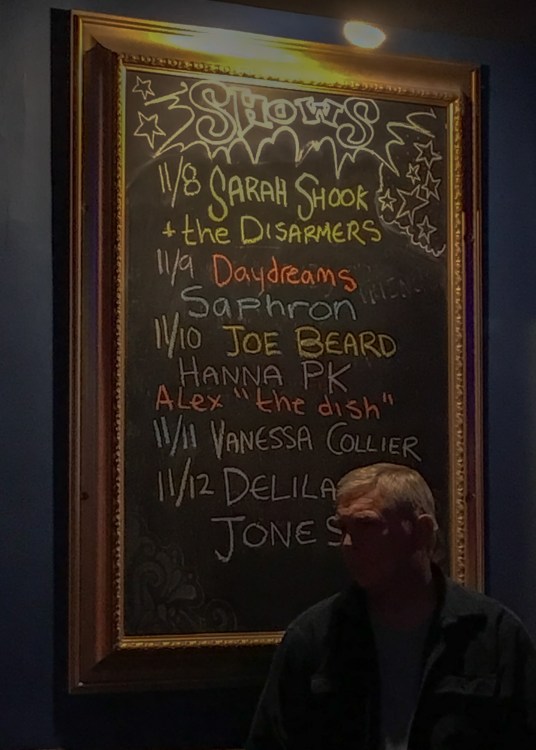 SHOWS
11/8 SARAH SHOOK
+ the DISARMERS
11/9 Daydreams
Saphron
11/10 JOE BEARD
HANNA PK
ALex "the dish"
11/11 VANESSA COLLIER
11/12 DELILA
JONES